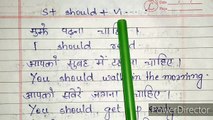 S+ should + V₁ ...
मुझे पढ़ना चाहिए ।
I should read.
आपको सुबह में टहलना चाहिए ।
You should walk in the morning.
आपको सवेरे जगना चाहिए ।
You should get
PowerDirector